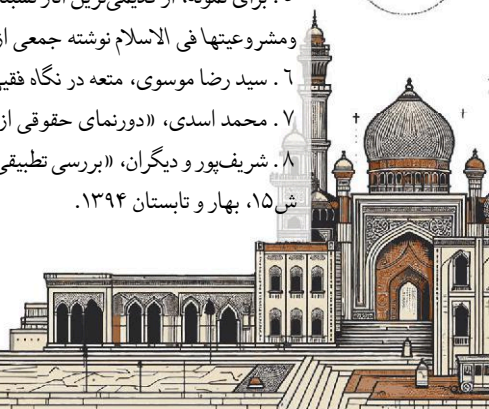 ۵. برای نمونه، از قدیمی‌ترین آثار
ومشروعیتها فی الاسلام نوشته جمعی از
۶. سید رضا موسوی، متعه در نگاه
۷. محمد اسدی، «دورنمای حقوقی از
۸. شریف‌پور و دیگران، «بررسی تطبیقی
ش۱۵، بهار و تابستان ۱۳۹۴.